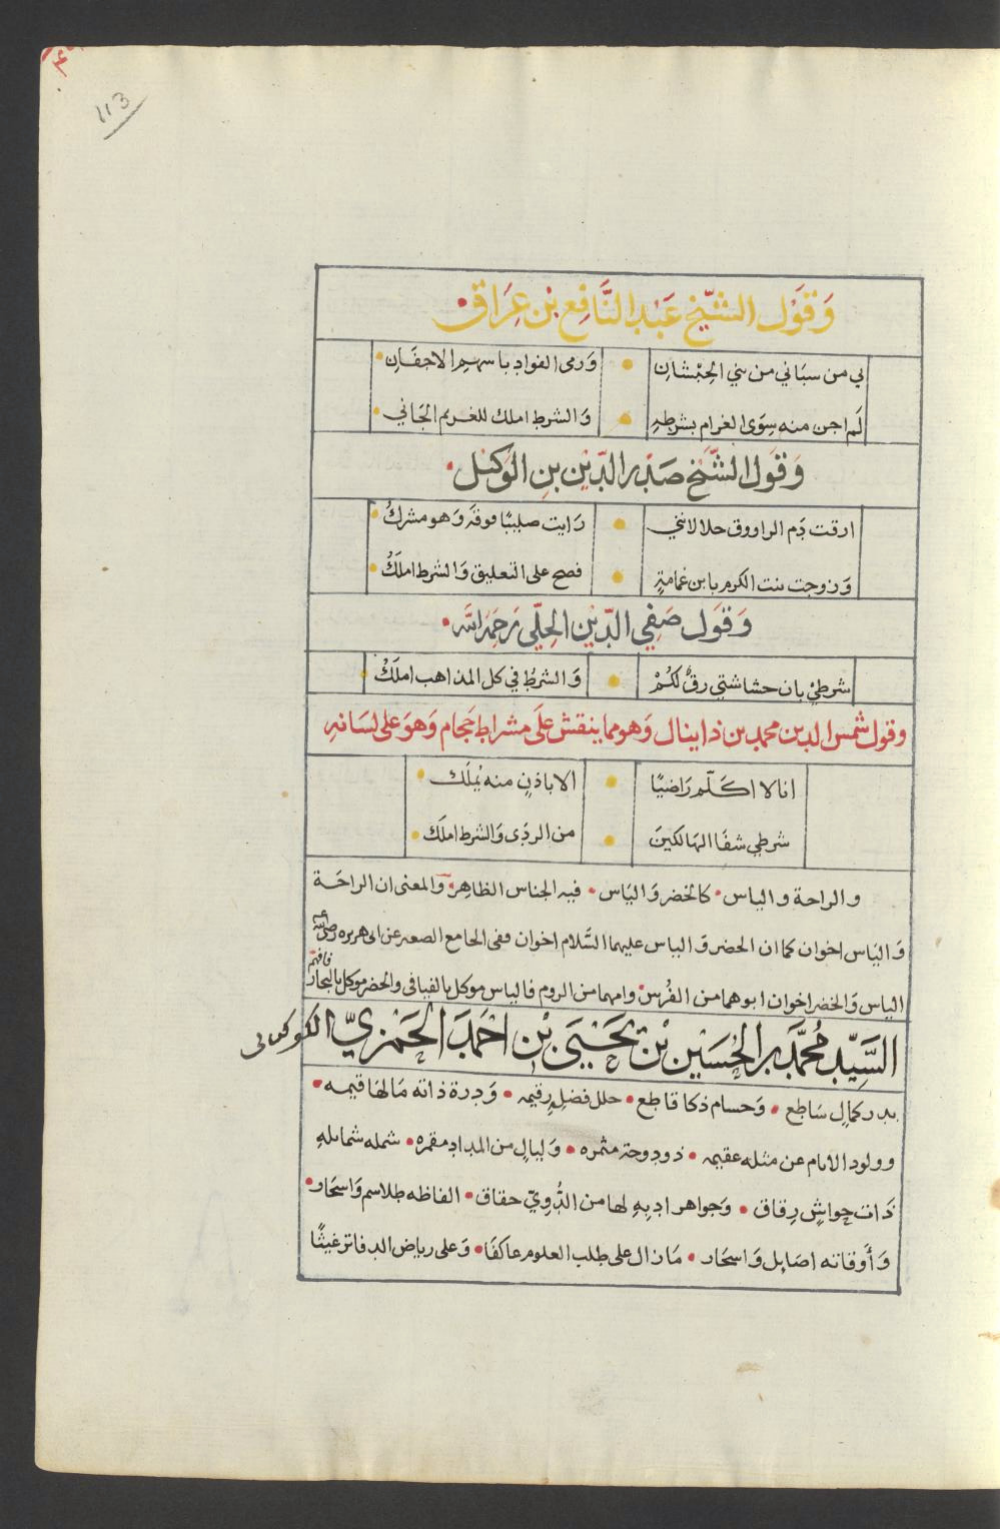 113
وَقَوْل الشّيْخ عَبْد النَّافِع بْن عِرَاق
بي من سبَاني من بني الحِبْشَان • وَرمى الفواد باسهم الاجفَان
لَم اجن منه سِوَى الغرام بشرطهِ • وَالشرط املك للغريم الجَاني
وَقَول الشّيْخ صَدْر الدّين بن الوَكيْل
ارقت دَم الراووق حلا لانني • رَايت صليبًا فوقه وَهو مشركُ
وَزوجت بنت الكرم بابن غمامةٍ • فصح على التعليق وَالشرط املكُ
وَقَول صَفِي الدّيْن الحِلّي رَحمَه الله
شرطيْ بان حشاشتي رقٌ لكُمْ • وَالشرطُ في كل المذاهب املَكُ
وقول شمس الدين محمد بن دانيال وَهو مما ينقش علَى مشراط حَجام وَهوَ على لسَانهِ
انا لا اكَلّم رَاضيًا • الا باذنٍ منه يُملَك
شرطي شفَا الهَالكينَ • من الردَى وَالشرط املَك
والراحة والياس • كالخضر وَاليَاس • فيه الجناس الظاهِر • وَالمعنى ان الراحَة
وَاليَاس اخوان كما ان الخضر وَالياس عليهما السَّلام اخوان ففى الجامع الصغير عن ابى هريره رضى الله عنه
الياس وَالخضر اخوان ابوهما من الفُرس وامهما من الروم فالياس موكل بالفيافى والخضر موكل بالبحار فافهم
السَّيِّد مُحمَّد بن الحُسَيْن بْن يَحْيَى بْن احْمَدَ الحَمْزِيّ الكوكبانى
بدر كمالٍ سَاطع • وَحسام ذكا قاطع • حلل فضلهِ رقيمه • وَدرة ذاته مَا لهَا قيمه
وولود الايام عن مثله عقيمه • ذو دوحة مثمره • وَليالٍ من المداد مقمره • شمله شمايلهِ
ذَات حواشٍ رقاق • وَجواهر ادبهِ لها من الدُّويّ حقاق • الفاظه طلاسم وَاسحَار
وَأَوقاته اصَايل وَاسحَار • مَازال على طلب العلوم عاكفَا • وَعلى رياض الدفاتر غيثًا